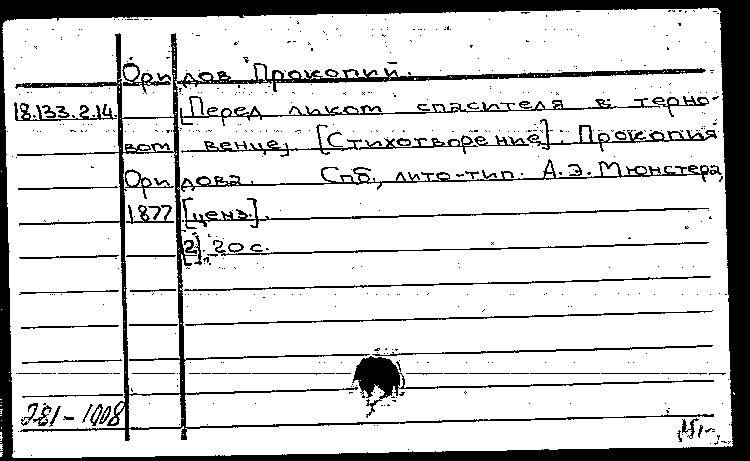 Оридов Прокопий.
18.133.2.14. [Перед ликом спасителя в терно-
вом венце]. [Стихотворение]. Прокопия
Оридова. Спб., лито-тип. А.Э.Мюнстера,
1877 [ценз].
[2], 20 с.
281-1008